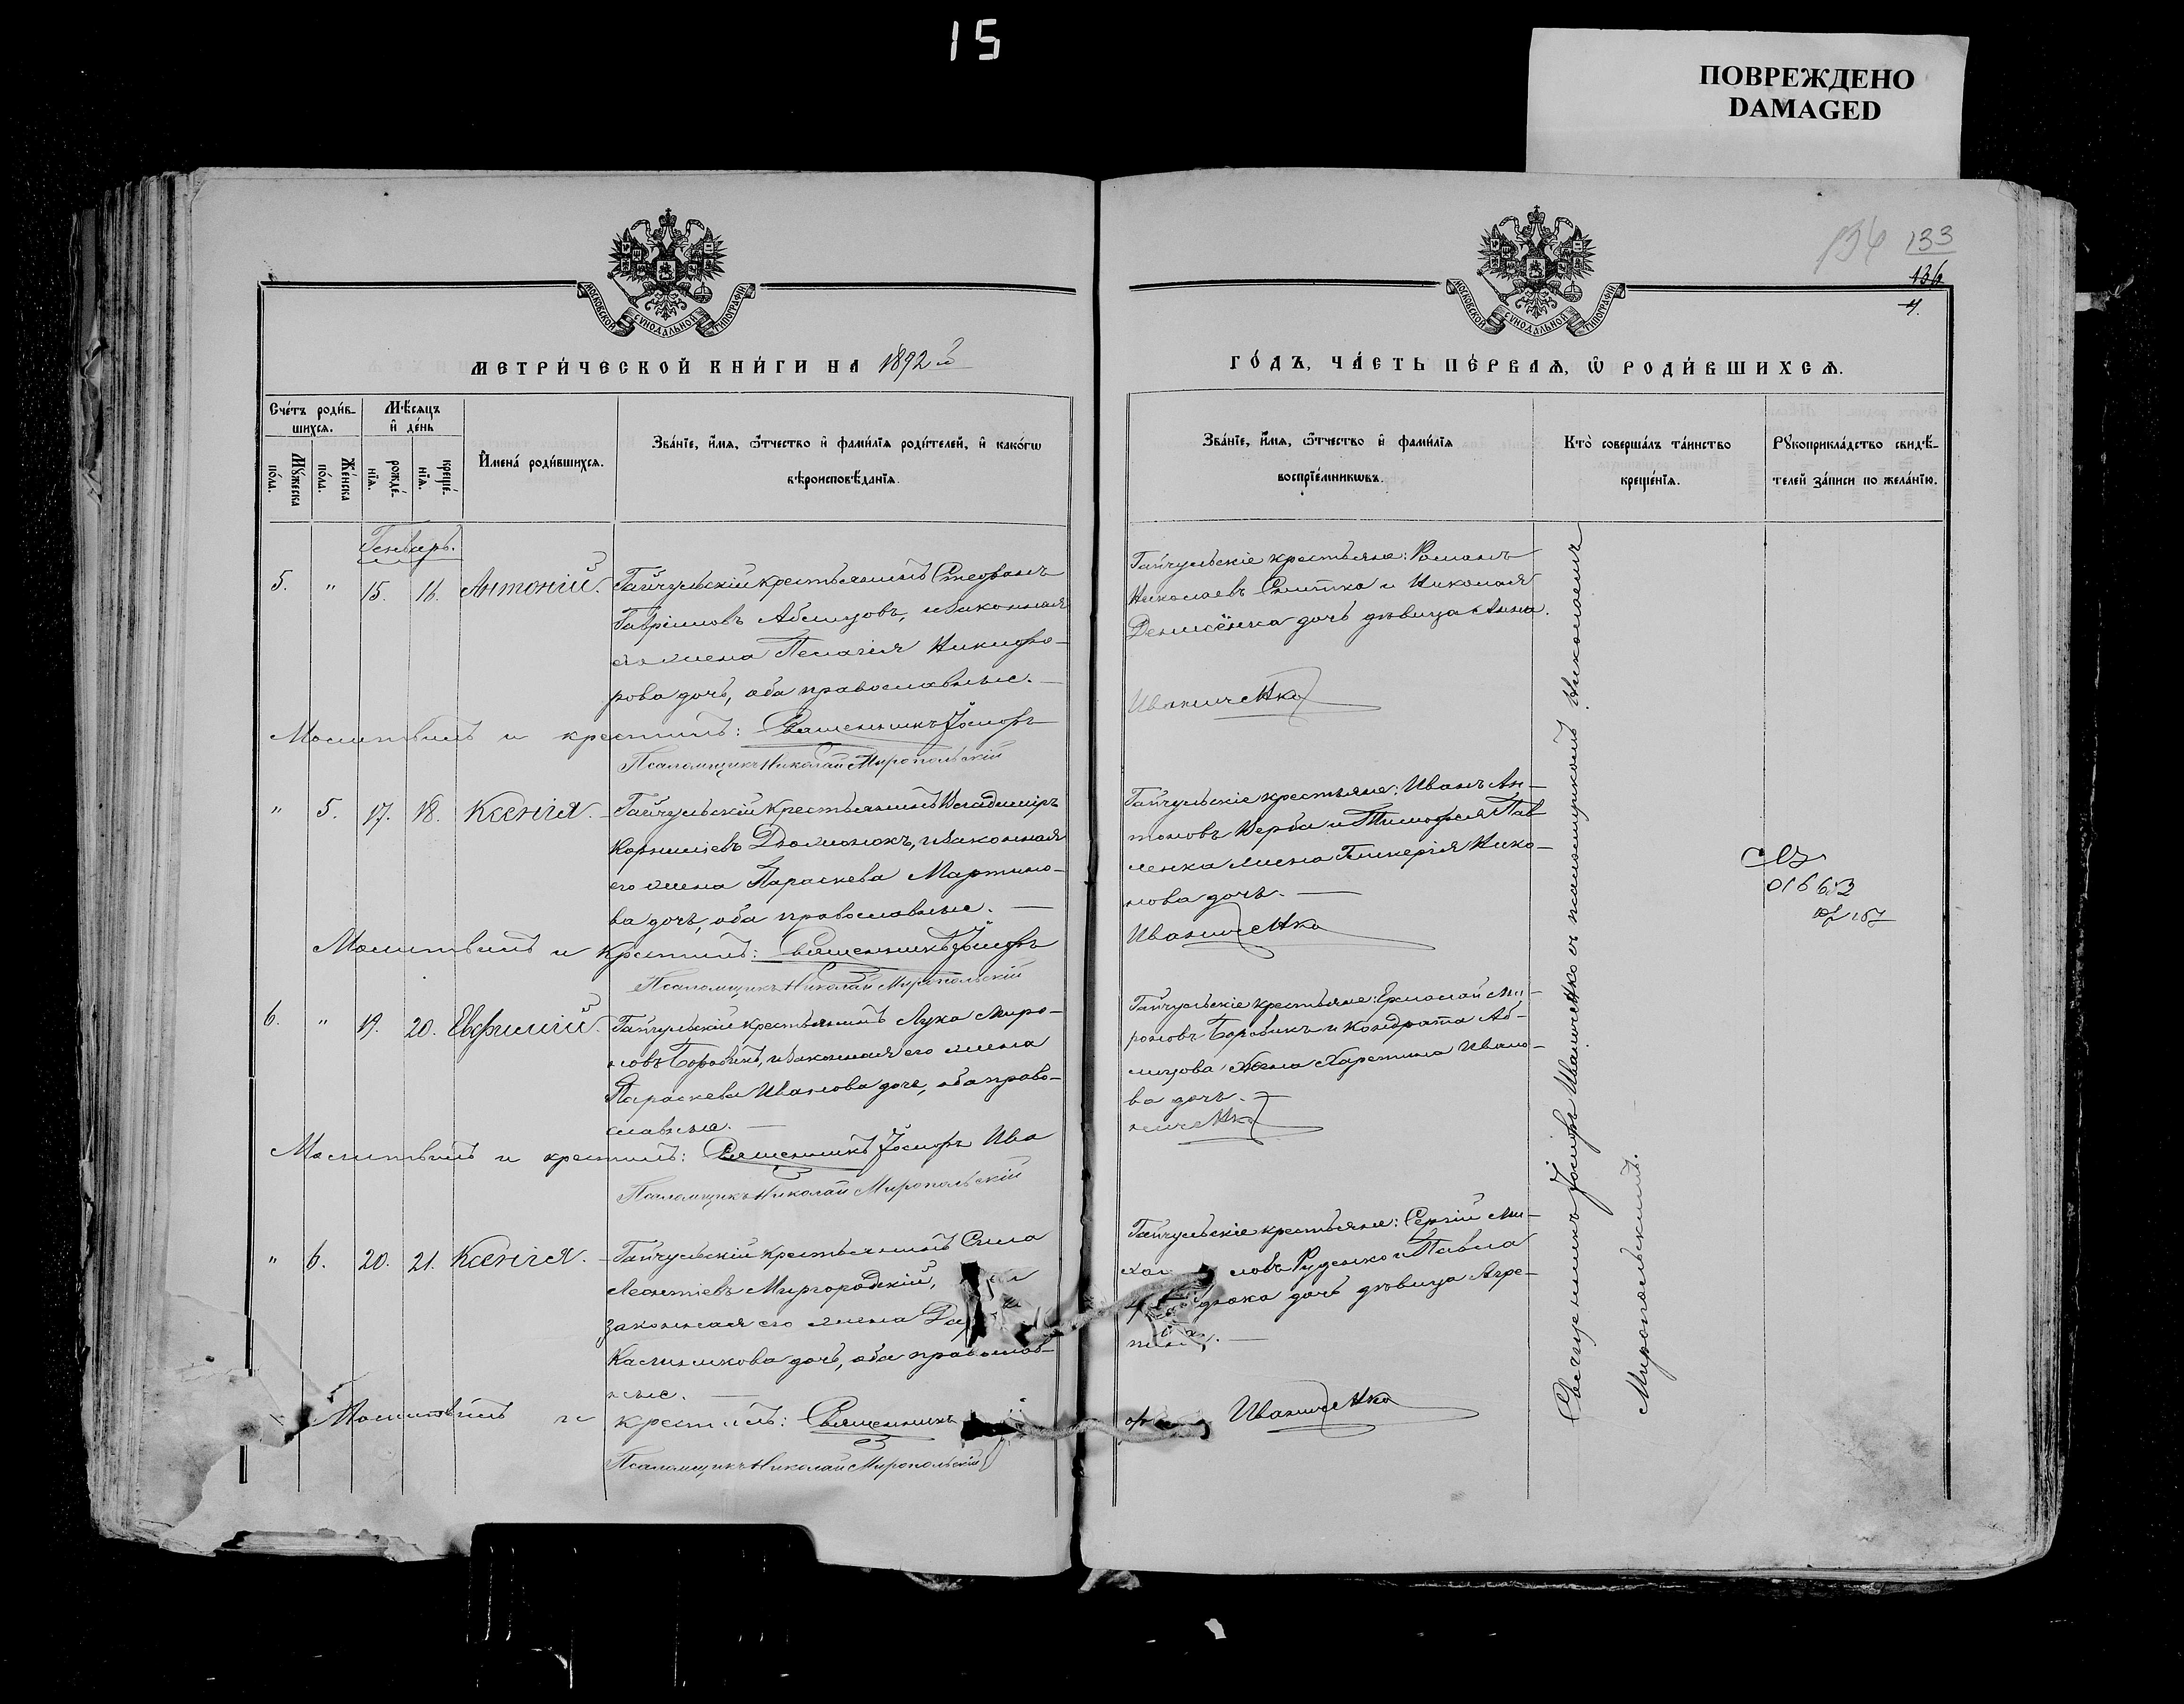 15
ПОВРЕЖДЕНО
DAMAGED
133
136
4.
МОСКОВСКОЙ СѴНОДАЛЬНОЙ ТИПОГРАФІИ
МОСКОВСКОЙ СѴНОДАЛЬНОЙ ТИПОГРАФІИ
МЕТРИ́ЧЕСКОЙ КНИ́ГИ НА 1892 й
ГО́ДЪ, ЧА́СТЬ ПЕ́РВАѦ, Ѡ РОДИ́ВШИХСѦ.
Сче́тъ роди́в-
шихсѧ.
Мꙋ́жеска по́ла.
Же́нска по́ла.
Мѣ́сѧцъ
и҆ де́нь
рожде́-
нїѧ.
креще́-
нїѧ.
И҆мена̀ роди́вшихсѧ.
Зва́нїе, и҆́мѧ, ѻ҆́тчество и҆ фами́лїѧ роди́телей, и҆ како́гѡ
вѣроисповѣ́данїѧ.
Зва́нїе, и҆́мѧ, ѻ҆́тчество и҆ фами́лїѧ
воспрїе́мникѡвъ.
Кто̀ соверша́лъ та́инство
креще́нїѧ.
Рꙋкоприкла́дство свидѣ́-
телей за́писи по жела́нїю.
Генварь.
5. " 15. 16. Антоній. Гайчульскій крестьянинъ Стефанъ
Гавріиловъ Аблицовъ, и законная
его жена Пелагія Никифо-
рова дочь, оба православные. —
Молитвилъ и крестилъ: Священникъ Іосифъ
Псаломщикъ Николай Миропольскій
Гайчульскіе крестьяне: Романъ
Николаевъ Снитка и Николая
Денисёнка дочь дѣвица Анна.
Иваниченко
" 5. 17. 18. Ксенія. – Гайчульскій крестьянинъ Владиміръ
Корниліевъ Домонокъ, и законная
его жена Параскева Мартино-
ва дочь, оба православные. —
Молитвилъ и крестилъ: Священникъ Іосифъ
Псаломщикъ Николай Миропольскій
Гайчульскіе крестьяне: Иванъ Ан-
тоновъ Верба и Тимофея Пав
ленка жена Гликерія Нико-
нова дочь. —
Иваниченко
6. " 19. 20. Евфимій. Гайчульскій крестьянинъ Лука Миро-
новъ Боровикъ, и законная его жена
Параскева Иванова дочь, оба право-
славные. —
Молитвилъ и крестилъ: Священникъ Іосифъ Ива
Псаломщикъ Николай Миропольскій
Гайчульскіе крестьяне: Ермолай Ми-
роновъ Боровикъ и Кондрата Аб-
лицова жена Харетина Ивано-
ва дочь. —
ниченко
" 6. 20. 21. Ксенія. – Гайчульскій крестьянинъ Сила
Леонтіевъ Миргородскій,
законная его жена
Калиникова дочь, оба православ-
ные. —
Молитвилъ и крестилъ: Священникъ
Псаломщикъ Николай Миропольскій
Гайчульскіе крестьяне: Сергій Ми-
хаи ловъ Руденко и Павла
дочь дѣвица Агре-
пина. —
Иваниченко
Священникъ Іосифъ Иваниченко съ псаломщикомъ Николаемъ
Миропольскимъ.